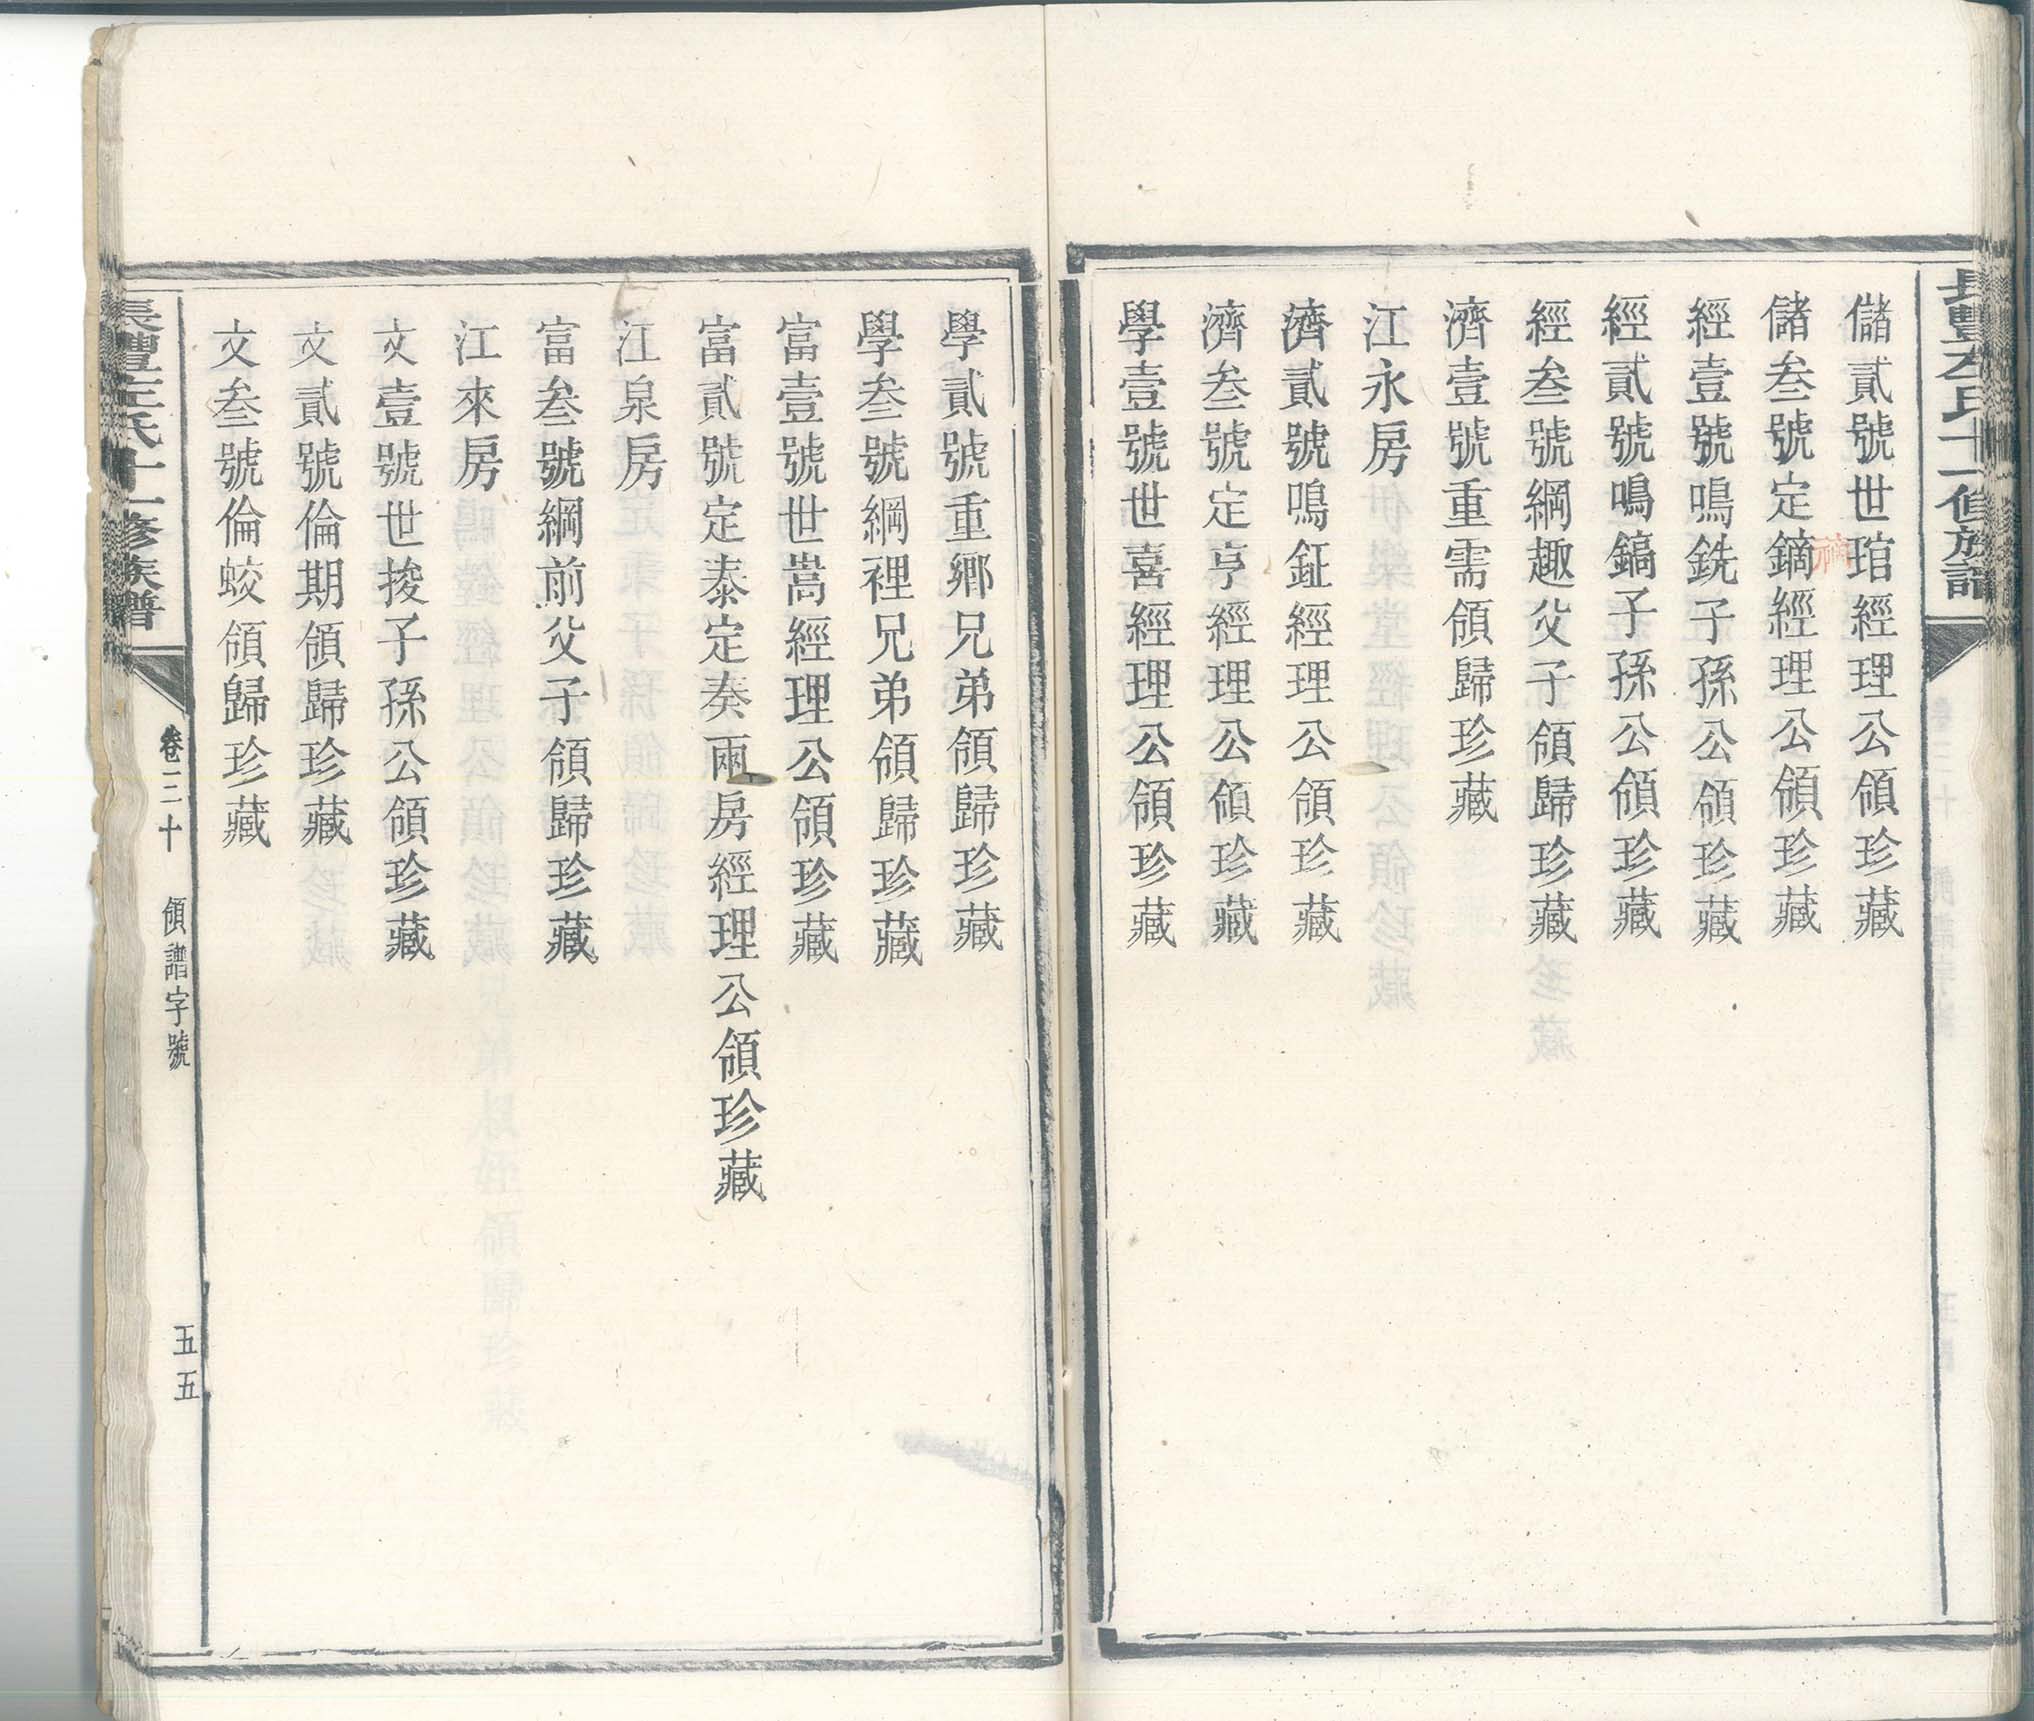 長豐左氏十一修族譜
儲貳號世琯經理公領珍藏
儲叁號定鏑經理公領珍藏
經壹號鳴銑子孫公領珍藏
經貳號鳴鎬子孫公領珍藏
經叁號綱趣父子領歸珍藏
濟壹號重需領歸珍藏
江永房
濟貳號鳴鉦經理公領珍藏
濟叁號定亨經理公領珍藏
學壹號世喜經理公領珍藏
學貳號重鄉兄弟領歸珍藏
學叁號綱裡兄弟領歸珍藏
富壹號世嵩經理公領珍藏
富貳號定泰定奏兩房經理公領珍藏
江泉房
富叁號綱前父子領歸珍藏
江來房
文壹號世捘子孫公領珍藏
文貳號倫期領歸珍藏
文叁號倫蛟領歸珍藏
長豐左氏十一修族譜
卷三十
領譜字號
五五